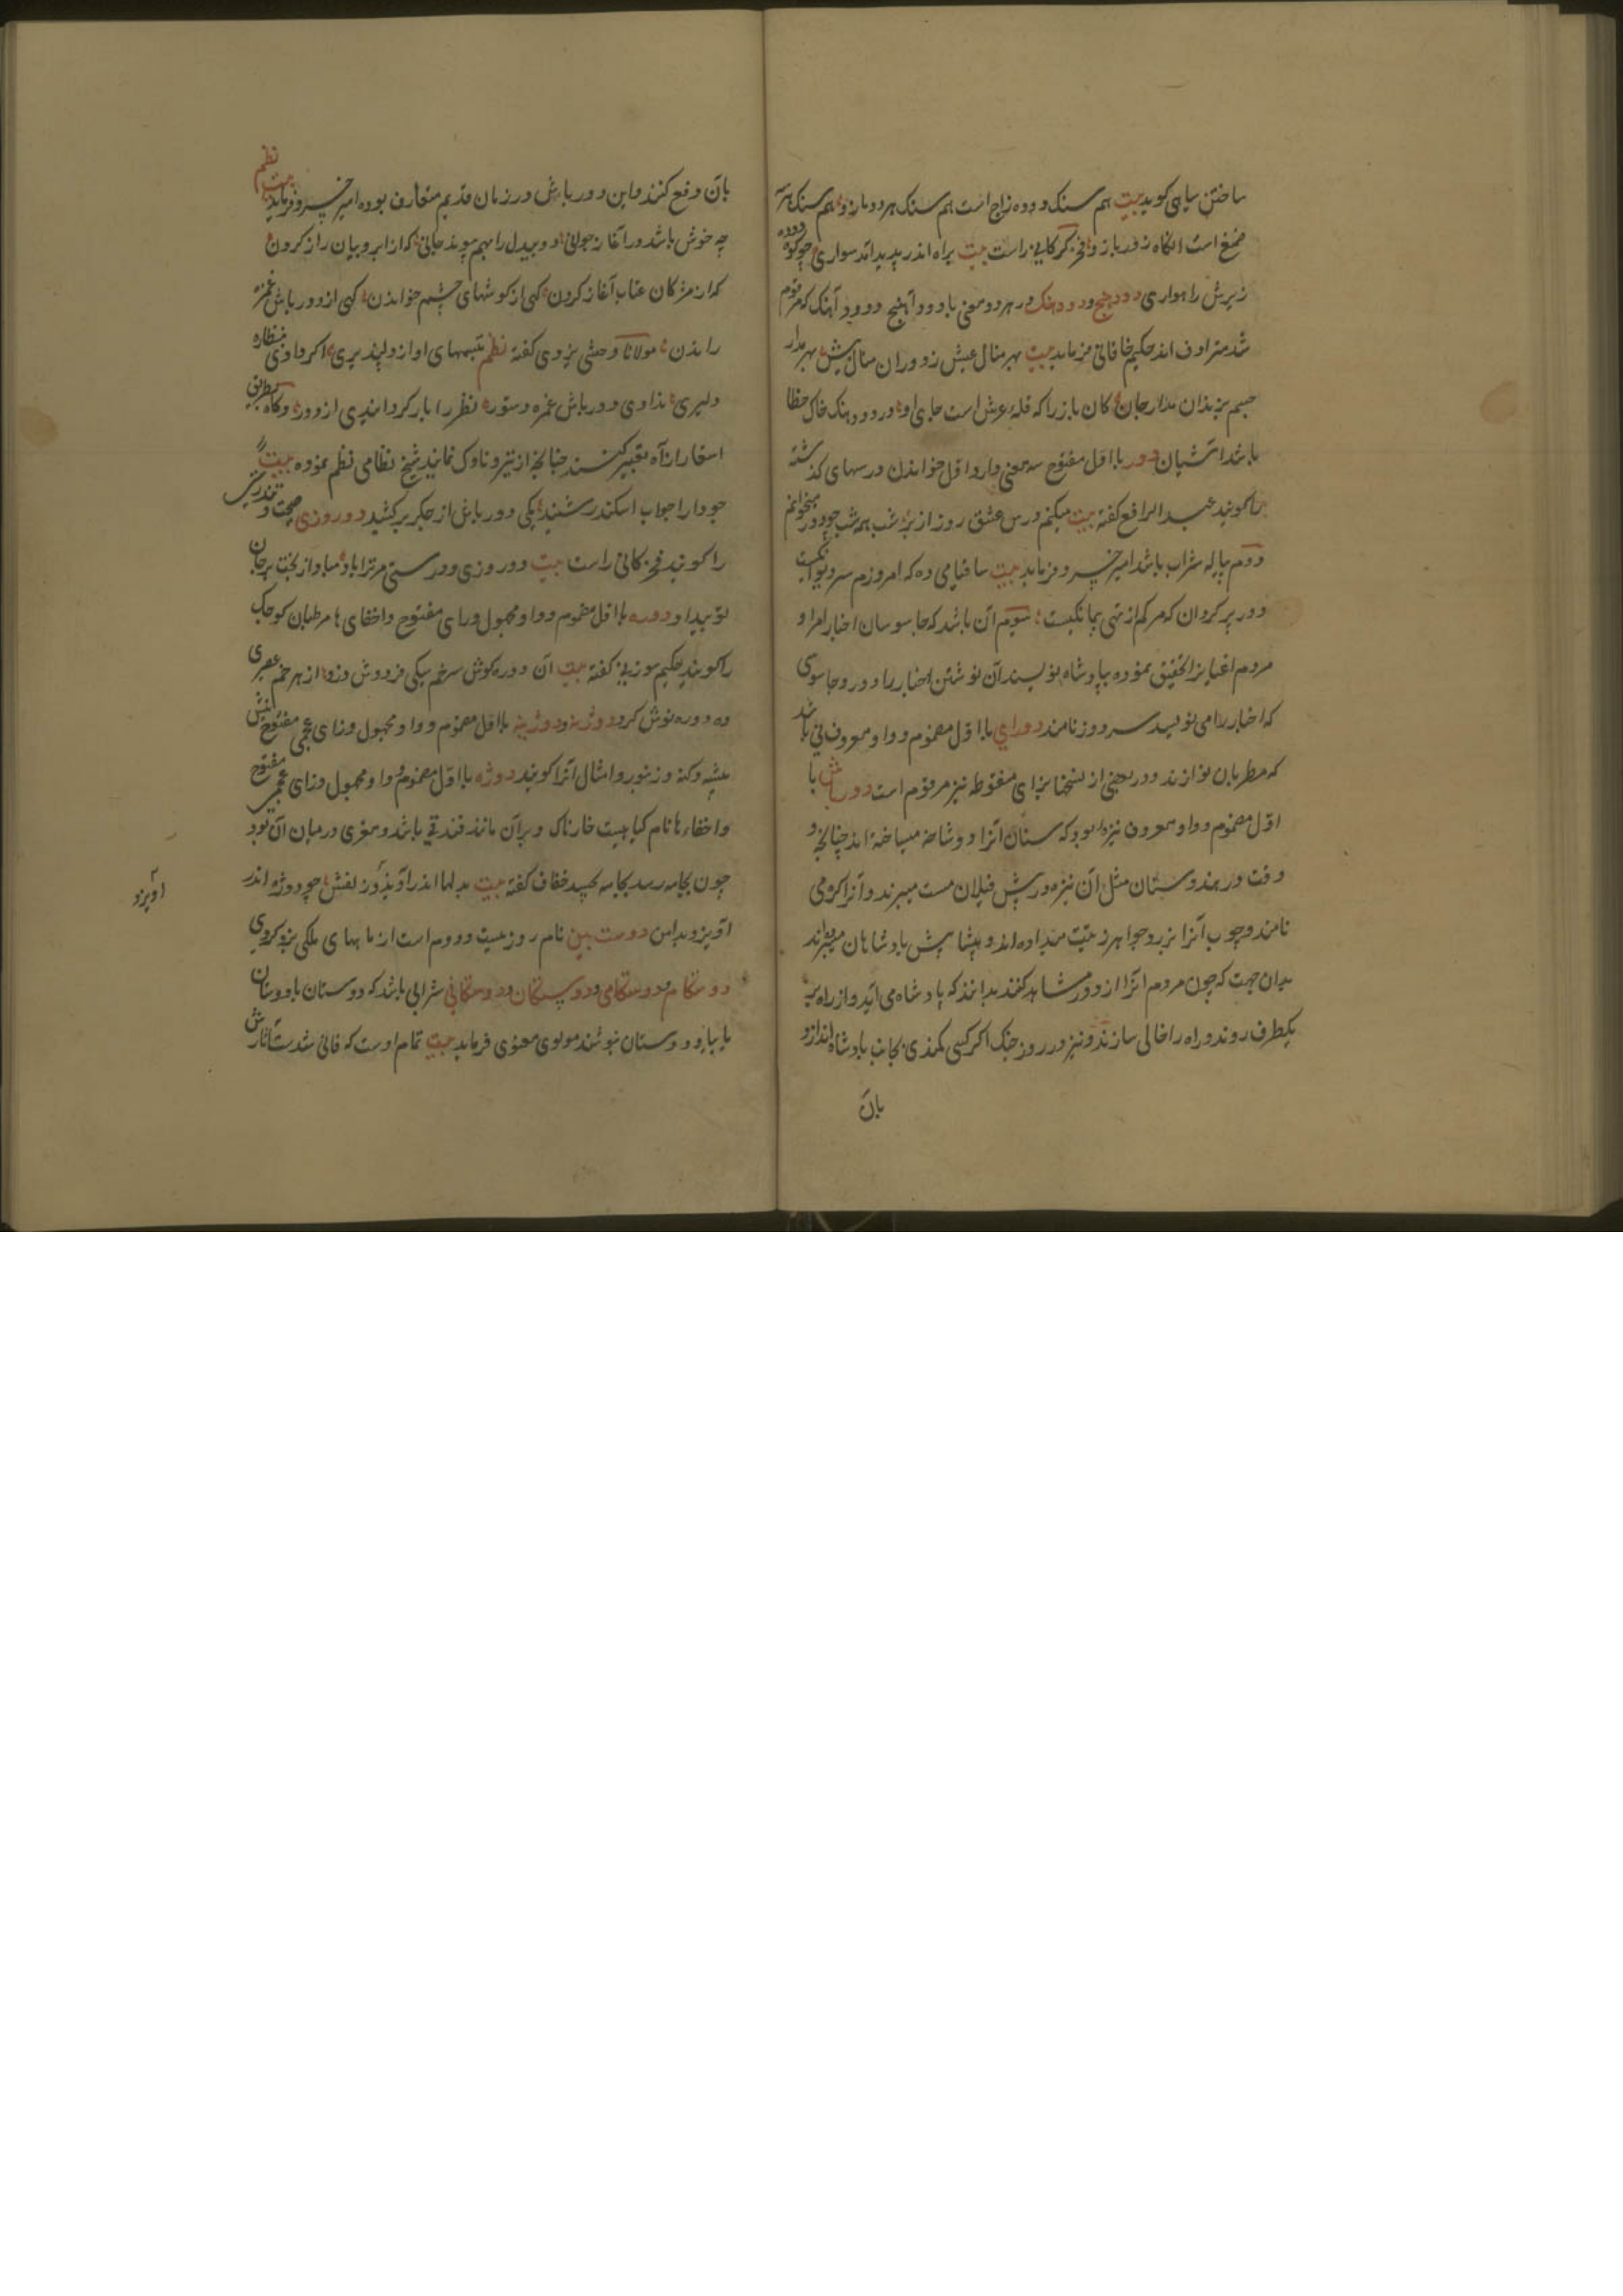 ساختن سیاهی کوید بیت هم سنک دوده زاج است هم سنک هر دو مازو هم سنک هر سه
صمغ است انکاه زور بازو فخر کرکانی راست بیت براه اندر پدید امد سواری چو کوه
زیرش راهواری دودهنج و دودهنک در هر دو معنی با دود آهنج و دود آهنک که مرقوم
شد مترادف اند حکیم خاقانی فرماید بیت بهر منال عیش ز دوران منال بیش بهر مدار
جسم بزندان مدار جان کان باز را که قله عرش است جای او در دودهنک خاک خطا
باشد اشیان دور با اول مفتوح سه معنی دارد اول خواندن درسهای کذشته
را کویند عبد الرافع کفته بیت میکنم درس عشق روز از بر شب همه شب چو دور میخوانم
دوم پیاله شراب باشد امیر خسرو فرماید بیت ساقیا می ده که امروزم سر دیوانکیست
دور پر کردان که مرکم از تهی پیمانکیست سیوم آن باشد که جاسوسان اخبار امرا و
مردم اعیان را تحقیق نموده بپادشاه نویسند آن نوشتن اخبار را دور و جاسوسی
که اخبار را می نویسد سر دور نامند دورای با اول مضموم و واو معروف نی باشد
که مطربان نوازند و در بعضی از نسخها بزای منقوطه نیز مرقوم است دورباش با
اول مضموم و واو معروف نیزه بود که سنان آنرا دو شاخه میساخته اند چنانچه
وقت در هندوستان مثل آن نیزه در پیش فیلان مست میبرند و آنرا کرمی
نامند و چوب آنرا بزر و جواهر زینت میداده اند و پیشاپیش پادشاهان میبرده اند
بدان جهت که چون مردم انرا از دور مشاهده کنند بدانند که پادشاه می اید و از راه بر
یکطرف روند و راه را خالی سازند و نیز در روز جنک اکر کسی کمندی بجانب پادشاه اندازد
بان
بان دفع کنند و این دورباش در زمان قدیم متعارف بوده امیر خسرو فرماید نظم
چه خوش باشد در آغاز جوانی دو بیدل را بهم پیوند جانی که از ابرو بیان راز کردن
که از مژکان عتاب آغاز کردن کهی از کوشهای چشم خواندن کهی از دورباش غمزه
راندن مولانا وحشی یزدی کفته نظم تبسمهای او از دلپذیری اکر دادی بنظاره
دلیری ندادی دورباش غمزه دستور نظر را بار کردانیدی از دور و کاه بطریق
استعاره از آه تعبیر کنند چنانچه از تیر و ناوک نمایند شیخ نظامی نظم نموده بیت
چو دارا جواب اسکندر شنید یکی دورباش از جکر برکشید دوروزی صحت و تندرستی
را کویند فخر کانی راست بیت دوروزی و درستی مر ترا باد مبادا از بخت بر جان
تو بیداد دوره با اول مضموم و واو مجهول و رای مفتوح و اخفای ها مرطبان کوچک
را کویند حکیم سوزنی کفته بیت آن دوره کوش سرخم سیکی فروش دزد از هر خم عصیری
ده دوره نوش کرد دوژنه و دوژینه با اول مضموم و واو مجهول و زای عجمی مفتوح نیش
پشه و کنه و زنبور و امثال آنرا کویند دوژه با اول مضموم و واو مجهول و زای عجمی مفتوح
و اخفاء ها نام کیاهیست خارناک و بر آن مانند فندقی باشد و مغزی در میان آن بود
چون بجامه رسد بجامه بچسپد خفاف کفته بیت بدلها اندر آویزد دو زلفش چو دوژه اندر
آویزد بدامن دوست بین نام روز بیست و دوم است از ماههای ملکی یزدکردی
دوستکام و دوستکامی و دوستکان و دوستکانی شرابی باشد که دوستان با دوستان
یا بیاد دوستان نوشند مولوی معنوی فرماید بیت تمام اوست که فانی شدست آثارش
آویزد